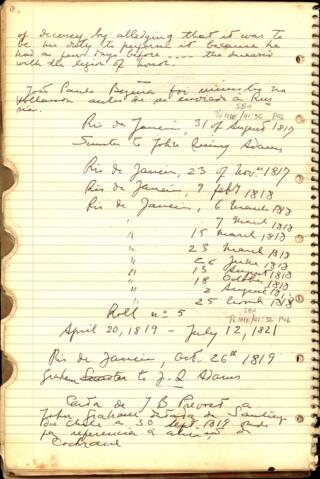 of decency by alledging that it was to
be his duty to payment it because he
had a few days before .... the
with the legion of honor.
José Paulo Bezerra foi ministro na
Hollanda antes de ser enviado a Rus
sia.
Rio de Janeiro, 31 of August 1817
Sumter to John Quincy Adams
Rio de Janeiro, 23 of Nov. 1817
Rio de Janeiro, 7 feb 1818
Rio de Janeiro, 6 March 1818
" 7 March 1818
" 15 March 1818
" 23 March 1818
" 26 June 1818
" 13 August 1818
" 18 October 1818
" 2 August 1818
" 25 1818
Roll nº 5
April 20, 1819 - July 12, 1821
Rio de Janeiro, Oct. 26th 1819
Graham Sumter to J. Q Adams
Carta de J B Prevost a
John Graham datada de Santiago
do Chile a 30 Sept. 1819
faz referencia a
Cochrane